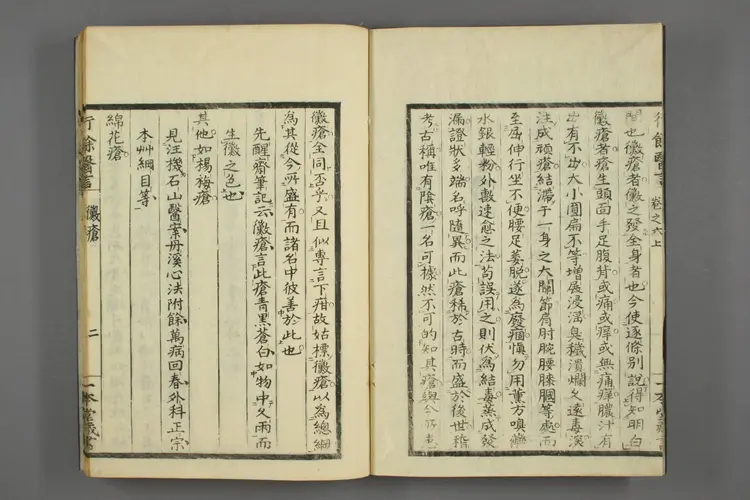 行餘醫言 卷之六上
間也黴瘡者黴之發全身者也今使逐條別說得知明白
黴瘡者瘡生頭面手足腹背或痛或痒或無痛痒膿汁有
出有不出大小圓扁不等增展浸淫臭穢潰爛久遠毒深
注成頑瘡結滯于一身之大關節肩肘腕腰膝膕等處而
至屈伸行坐不便腰足萎脫遂為廢痼愼勿用熏方嗅藥
水銀輕粉外數速愈之法苟誤用之則伏為結毒蒸成發
漏證狀多端名呼隨異而此瘡稀於古時而盛於後世稽
考古稱唯有陰瘡一名可據然不可的知其瘡與今所患
黴瘡全同否乎又且似專言下疳故姑標黴瘡以為總綱
為其從今所盛有而諸名中彼善於此也
先醒齋筆記云黴瘡言此瘡青黑蒼白如物中久雨而
生黴之色也
其他如楊梅瘡
見汪機石山醫案丹溪心法附餘萬病回春外科正宗
本艸綱目等
綿花瘡
行餘醫言 黴瘡 二 一本堂藏